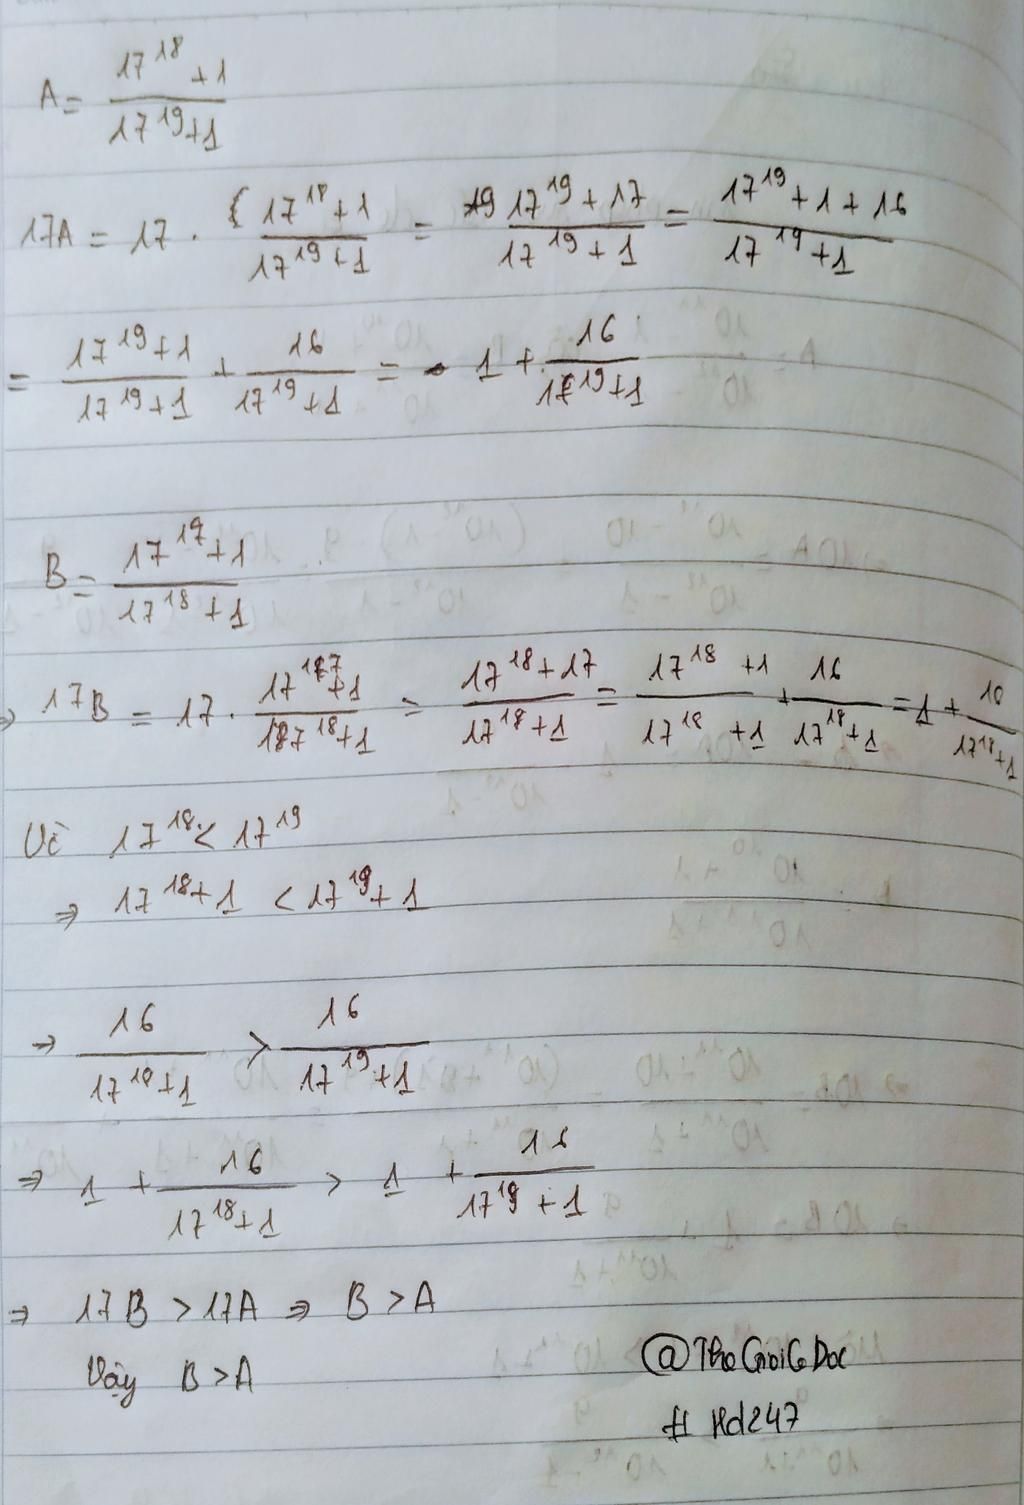 A = \frac{17^{18}+1}{17^{19}+1}
17A = 17 . \frac{17^{18}+1}{17^{19}+1} = \frac{17^{19}+17}{17^{19}+1} = \frac{17^{19}+1+16}{17^{19}+1}
= \frac{17^{19}+1}{17^{19}+1} + \frac{16}{17^{19}+1} = 1 + \frac{16}{17^{19}+1}
B = \frac{17^{17}+1}{17^{18}+1}
⇒ 17B = 17 . \frac{17^{17}+1}{17^{18}+1} = \frac{17^{18}+17}{17^{18}+1} = \frac{17^{18}+1}{17^{18}+1} + \frac{16}{17^{18}+1} = 1 + \frac{16}{17^{18}+1}
Vì 17^{18} < 17^{19}
⇒ 17^{18}+1 < 17^{19}+1
⇒ \frac{16}{17^{18}+1} > \frac{16}{17^{19}+1}
⇒ 1 + \frac{16}{17^{18}+1} > 1 + \frac{16}{17^{19}+1}
⇒ 17B > 17A ⇒ B > A
Vậy B > A
# Hd247